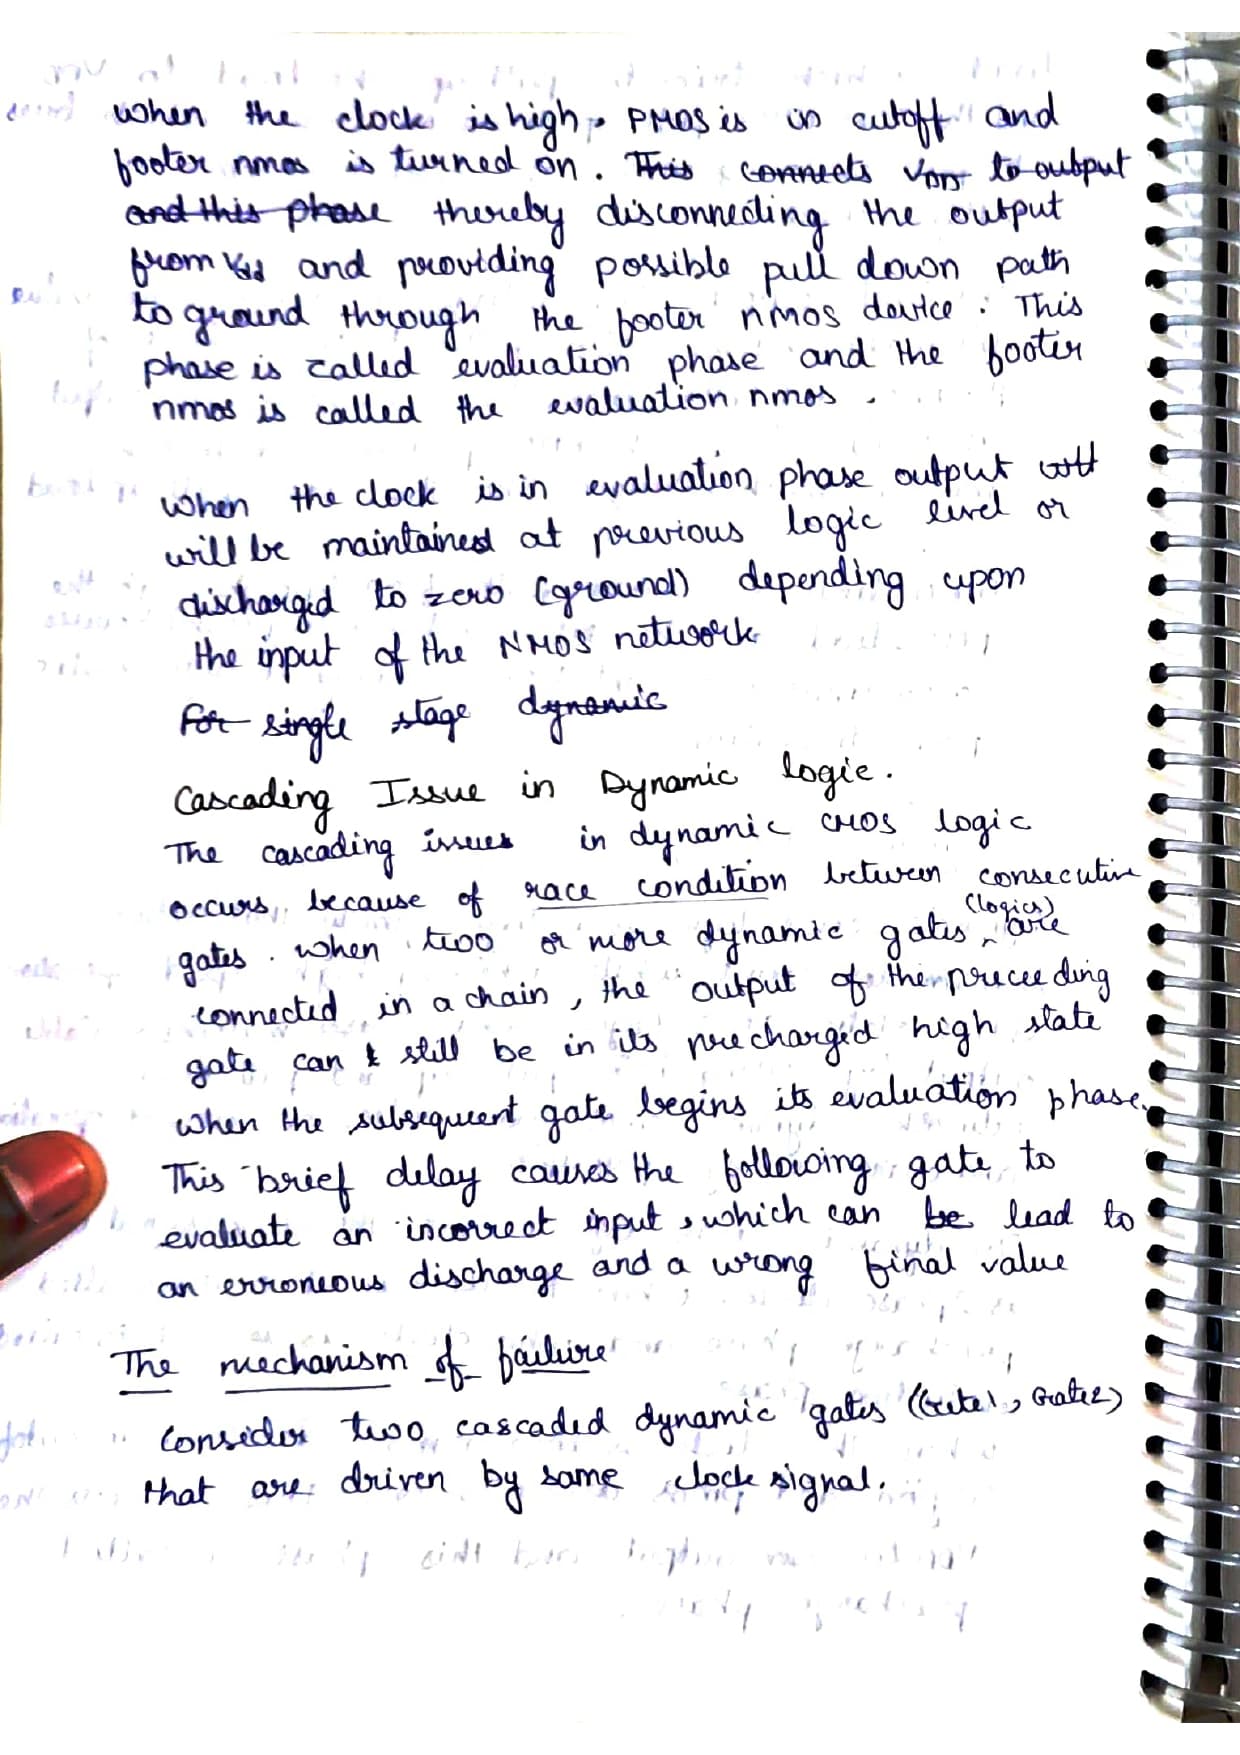 when the clock is high, PMOS is in cutoff and
footer nmos is turned on. This connects VDD to output
and this phase thereby disconnecting the output
from Vdd and providing possible pull down path
to ground through the footer nmos device. This
phase is called evaluation phase and the footer
nmos is called the evaluation nmos.
when the clock is in evaluation phase output will
will be maintained at previous logic level or
discharged to zero (ground) depending upon
the input of the NMOS network
For single stage dynamic
Cascading Issue in Dynamic logic.
The cascading issues in dynamic CMOS logic
occurs, because of race condition between consecutive
gates. when two or more dynamic gates (logics) are
connected in a chain, the output of the preceeding
gate can still be in its precharged high state
when the subsequent gate begins its evaluation phase.
This brief delay causes the following gate to
evaluate an incorrect input, which can be lead to
an erroneous discharge and a wrong final value
The mechanism of failure
Consider two cascaded dynamic gates (Gate1, Gate2)
that are driven by same clock signal.